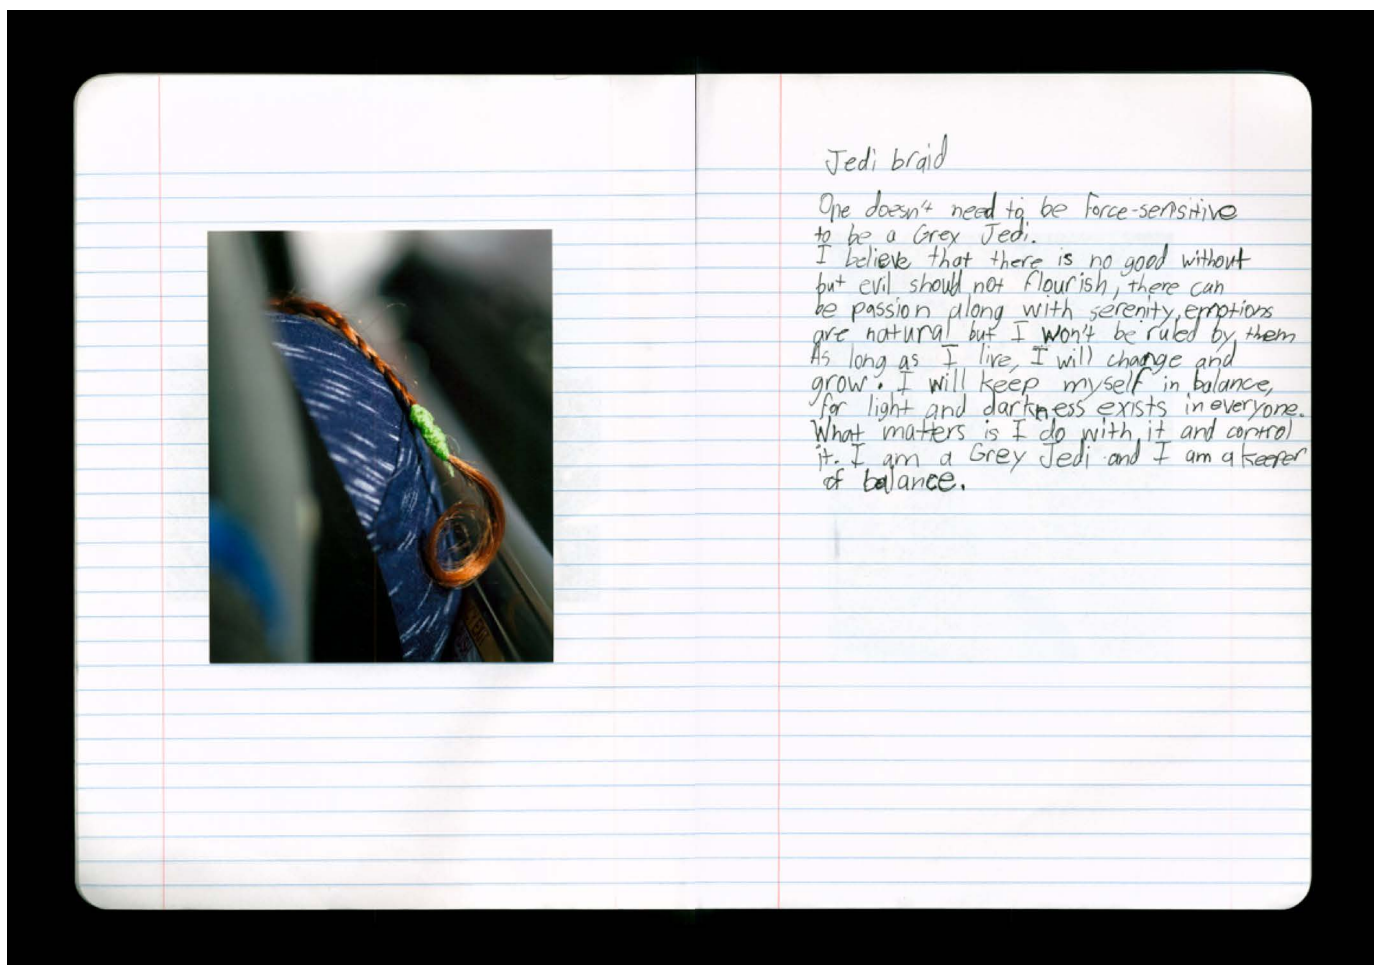 Jedi braid
One doesn't need to be force-sensitive
to be a Grey Jedi.
I believe that there is no good without
but evil should not flourish, there can
be passion along with serenity, emotions
are natural but I won't be ruled by them
As long as I live, I will change and
grow. I will keep myself in balance,
for light and darkness exists in everyone.
What matters is I do with it and control
it. I am a Grey Jedi and I am a keeper
of balance.